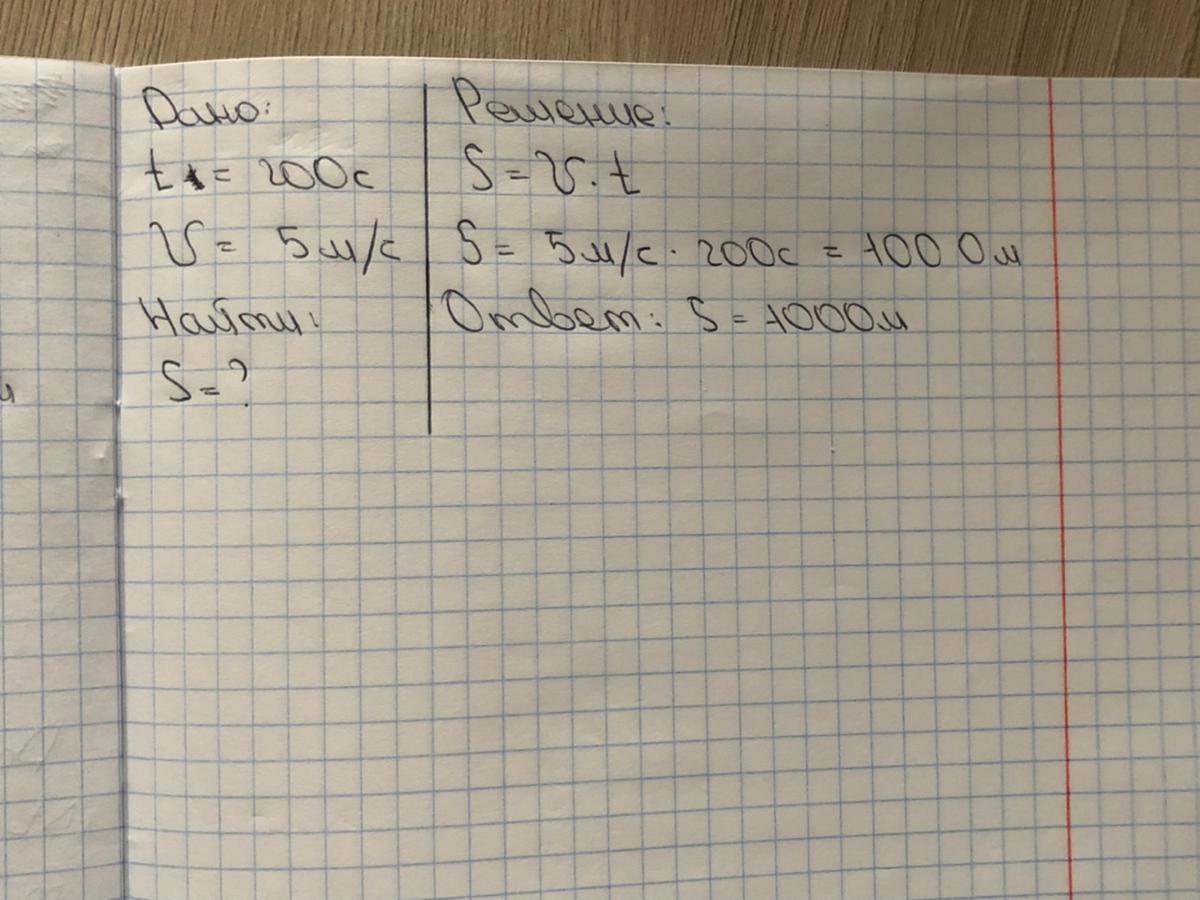 Дано:
t = 200с
V = 5м/с
Найти:
S = ?
Решение:
S = V · t
S = 5м/с · 200с = 1000м
Ответ: S = 1000м